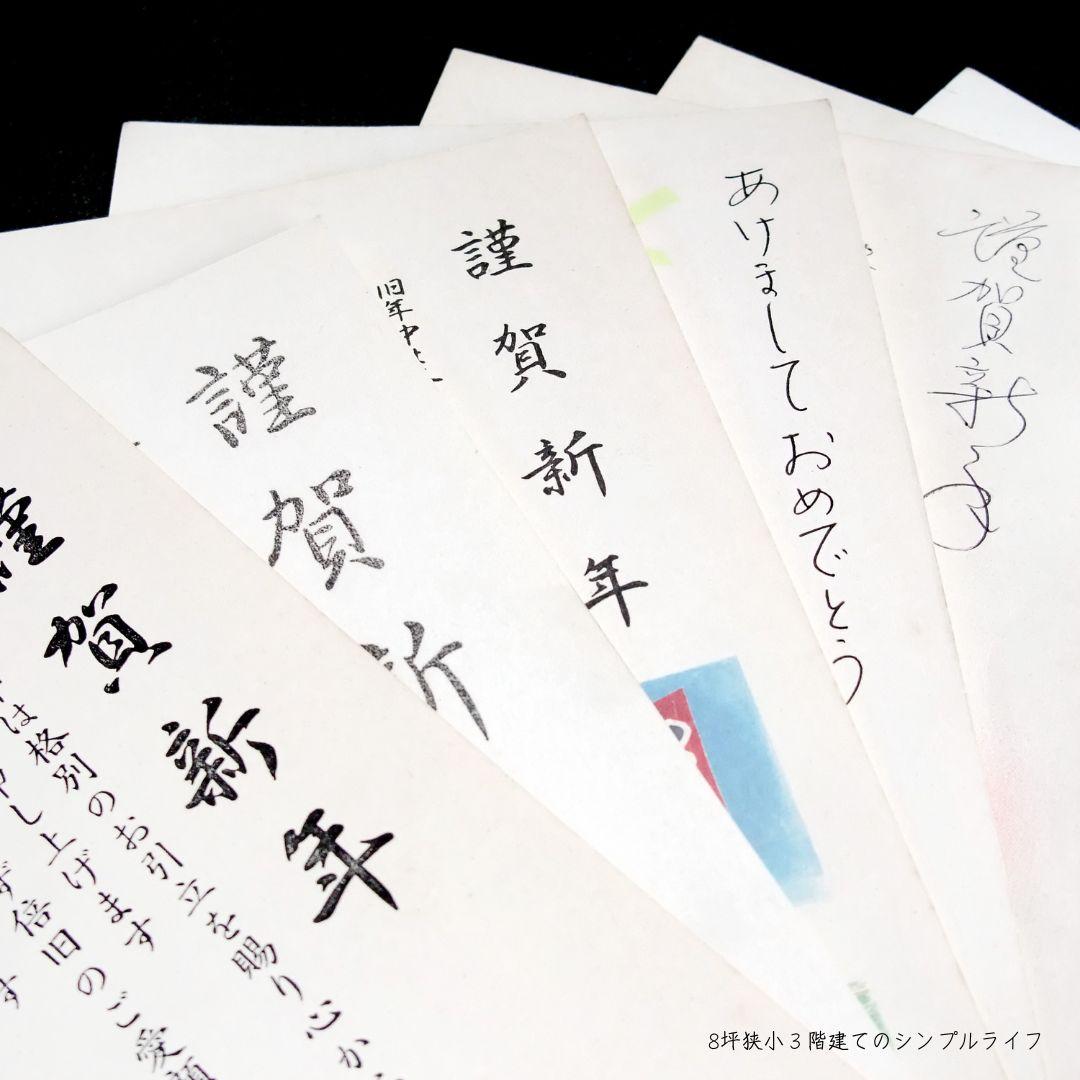 謹賀新年
あけましておめでとう
謹賀新年
旧年中
謹賀新
謹賀新年
は格別のお引立を賜り心か
申し上げます
倍旧のご愛顧
す
8坪狭小3階建てのシンプルライフ